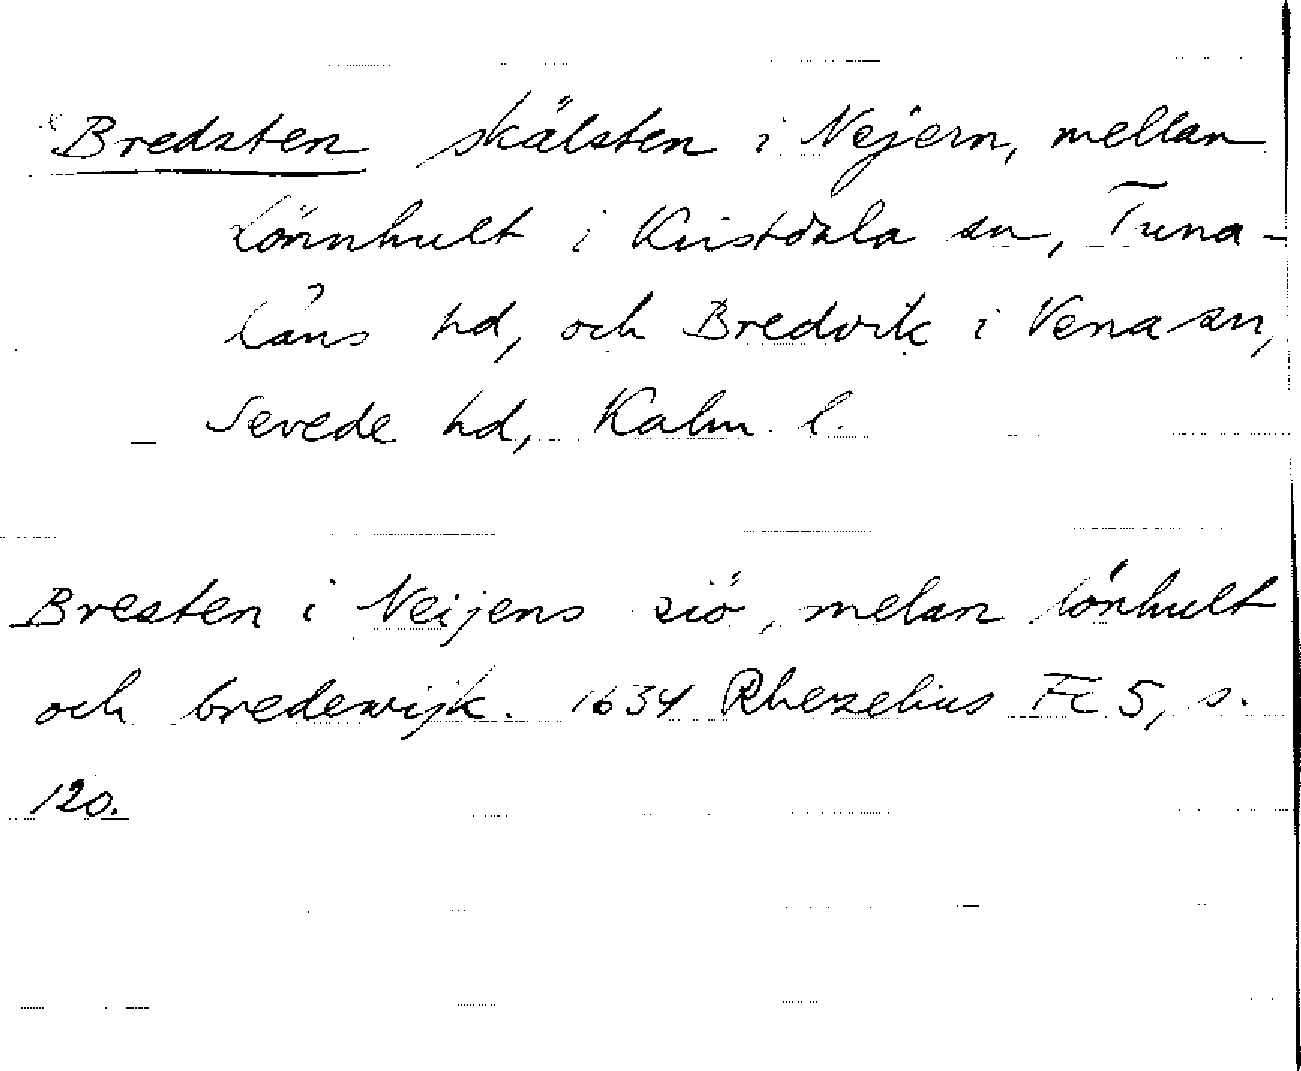 Bredsten skälsten i Nejern, mellan
Lönnhult i Kristdala sn, Tuna-
läns hd, och Bredvik i Vena sn,
Sevede hd, Kalm. l.
Bresten i Neijens siö, melan lönhult
och bredewijk. 1634 Rhezelius Fc 5, s.
120.